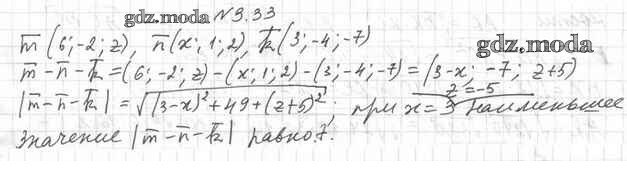 gdz.moda №9.33
m̅(6;-2;z), n̅(x;1;2), k̅(3;-4;-7)
gdz.moda
m̅-n̅-k̅=(6;-2;z)-(x;1;2)-(3;-4;-7)=(3-x; -7; z+5)
|m̅-n̅-k̅|=√((3-x)²+49+(z+5)²; при x=3 z=-5 наименьшее
значение |m̅-n̅-k̅| равно 7.